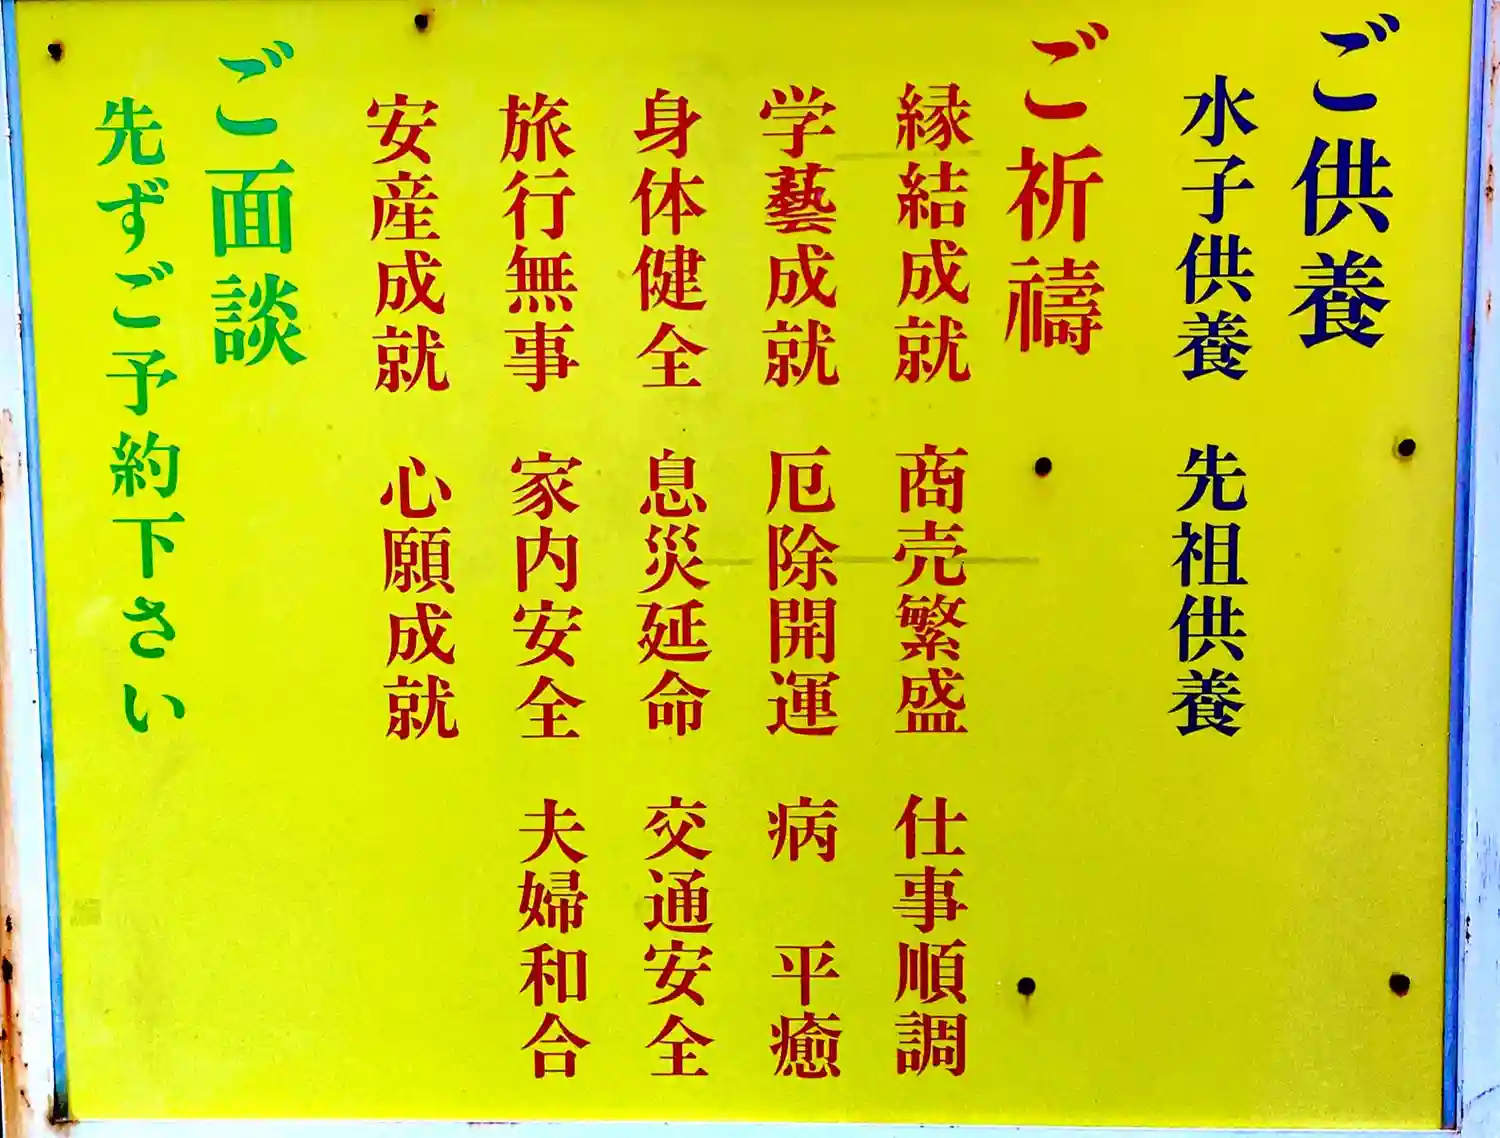 ご供養
水子供養　先祖供養
ご祈禱
縁結成就　商売繁盛　仕事順調
学藝成就　厄除開運　病　平癒
身体健全　息災延命　交通安全
旅行無事　家内安全　夫婦和合
安産成就　心願成就
ご面談
先ずご予約下さい